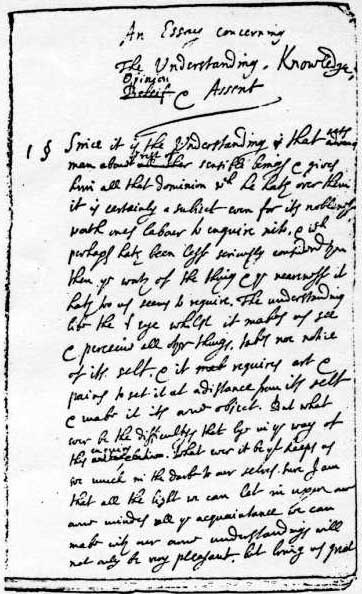 An Essay concerning
The Understanding, Knowledge,
Opinion
Beleif & Assent
1 § Since it is the Understanding yt that sets
man above all other sensible beings & gives
him all that dominion wch he hath over them
it is certainly a subject even for its noblenesse
worth our labour to enquire into, & wch
perhaps hath been lesse seriously considerd
then ye worth of the thing & ye nearenesse it
hath to us seems to require. The understanding
like the eye whilst it makes us see
& perceive all other things, takes noe notice
of its self, & it requires art &
pains to set it at a distance from its self
& make it its owne object. But what
ever be the difficultys that lye in ye way of
this enquiry what ever it be yt keeps us
soe much in the darke to our selves, sure I am
that all the light we can let in upon our
owne mindes all ye acquaintance we can
make with our owne understandings will
not only be very pleasant, but bring us great